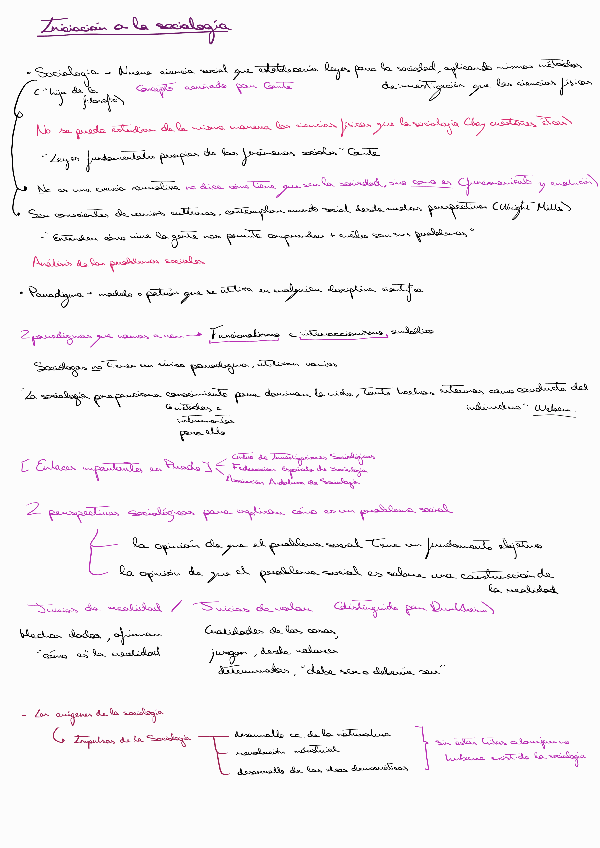 Iniciación a la sociología
• Sociología → Nueva ciencia social que establecería leyes para la sociedad, aplicando mismos métodos
(“hija de la filosofía”) Concepto acuñado por Comte de investigación que las ciencias físicas
No se puede estudiar de la misma manera las ciencias físicas que la sociología (hay cuestiones éticas)
“Leyes fundamentales propias de los fenómenos sociales” Comte
No es una ciencia normativa no dice cómo tiene que ser la sociedad, sino como es (funcionamiento y evolución)
Ser conscientes de nuevas culturas, contemplar mundo social desde muchas perspectivas (Wright Mills)
“Entender cómo vive la gente nos permite comprender + cuáles son sus problemas”
Análisis de los problemas sociales
• Paradigma → modelo o patrón que se utiliza en cualquier disciplina científica
2 paradigmas que vamos a ver → Funcionalismo e interaccionismo simbólico
Sociólogos no tienen un único paradigma, utilizan varios
“La sociología proporciona conocimiento para dominar la vida, tanto hechos externos como conducta del
métodos e individuo” Weber
instrumentos
para ello
[Enlaces importantes en Prado]
Centro de Investigaciones Sociológicas
Federación Española de Sociología
Asociación Andaluza de Sociología
2 perspectivas sociológicas para explicar cómo es un problema social
la opinión de que el problema social tiene un fundamento objetivo
la opinión de que el problema social es sobre una construcción de
la realidad
Juicios de realidad / Juicios de valor (distinguido por Durkheim)
Hechos dados, afirman Cualidades de las cosas,
“cómo es” la realidad juzgan, desde valores
determinados, “debe ser o debería ser”
- Los orígenes de la sociología
Impulsos de la Sociología
desarrollo cc. de la naturaleza
revolución industrial
desarrollo de las ideas democráticas
sin estos hitos a lo mejor no
hubiera existido la sociología